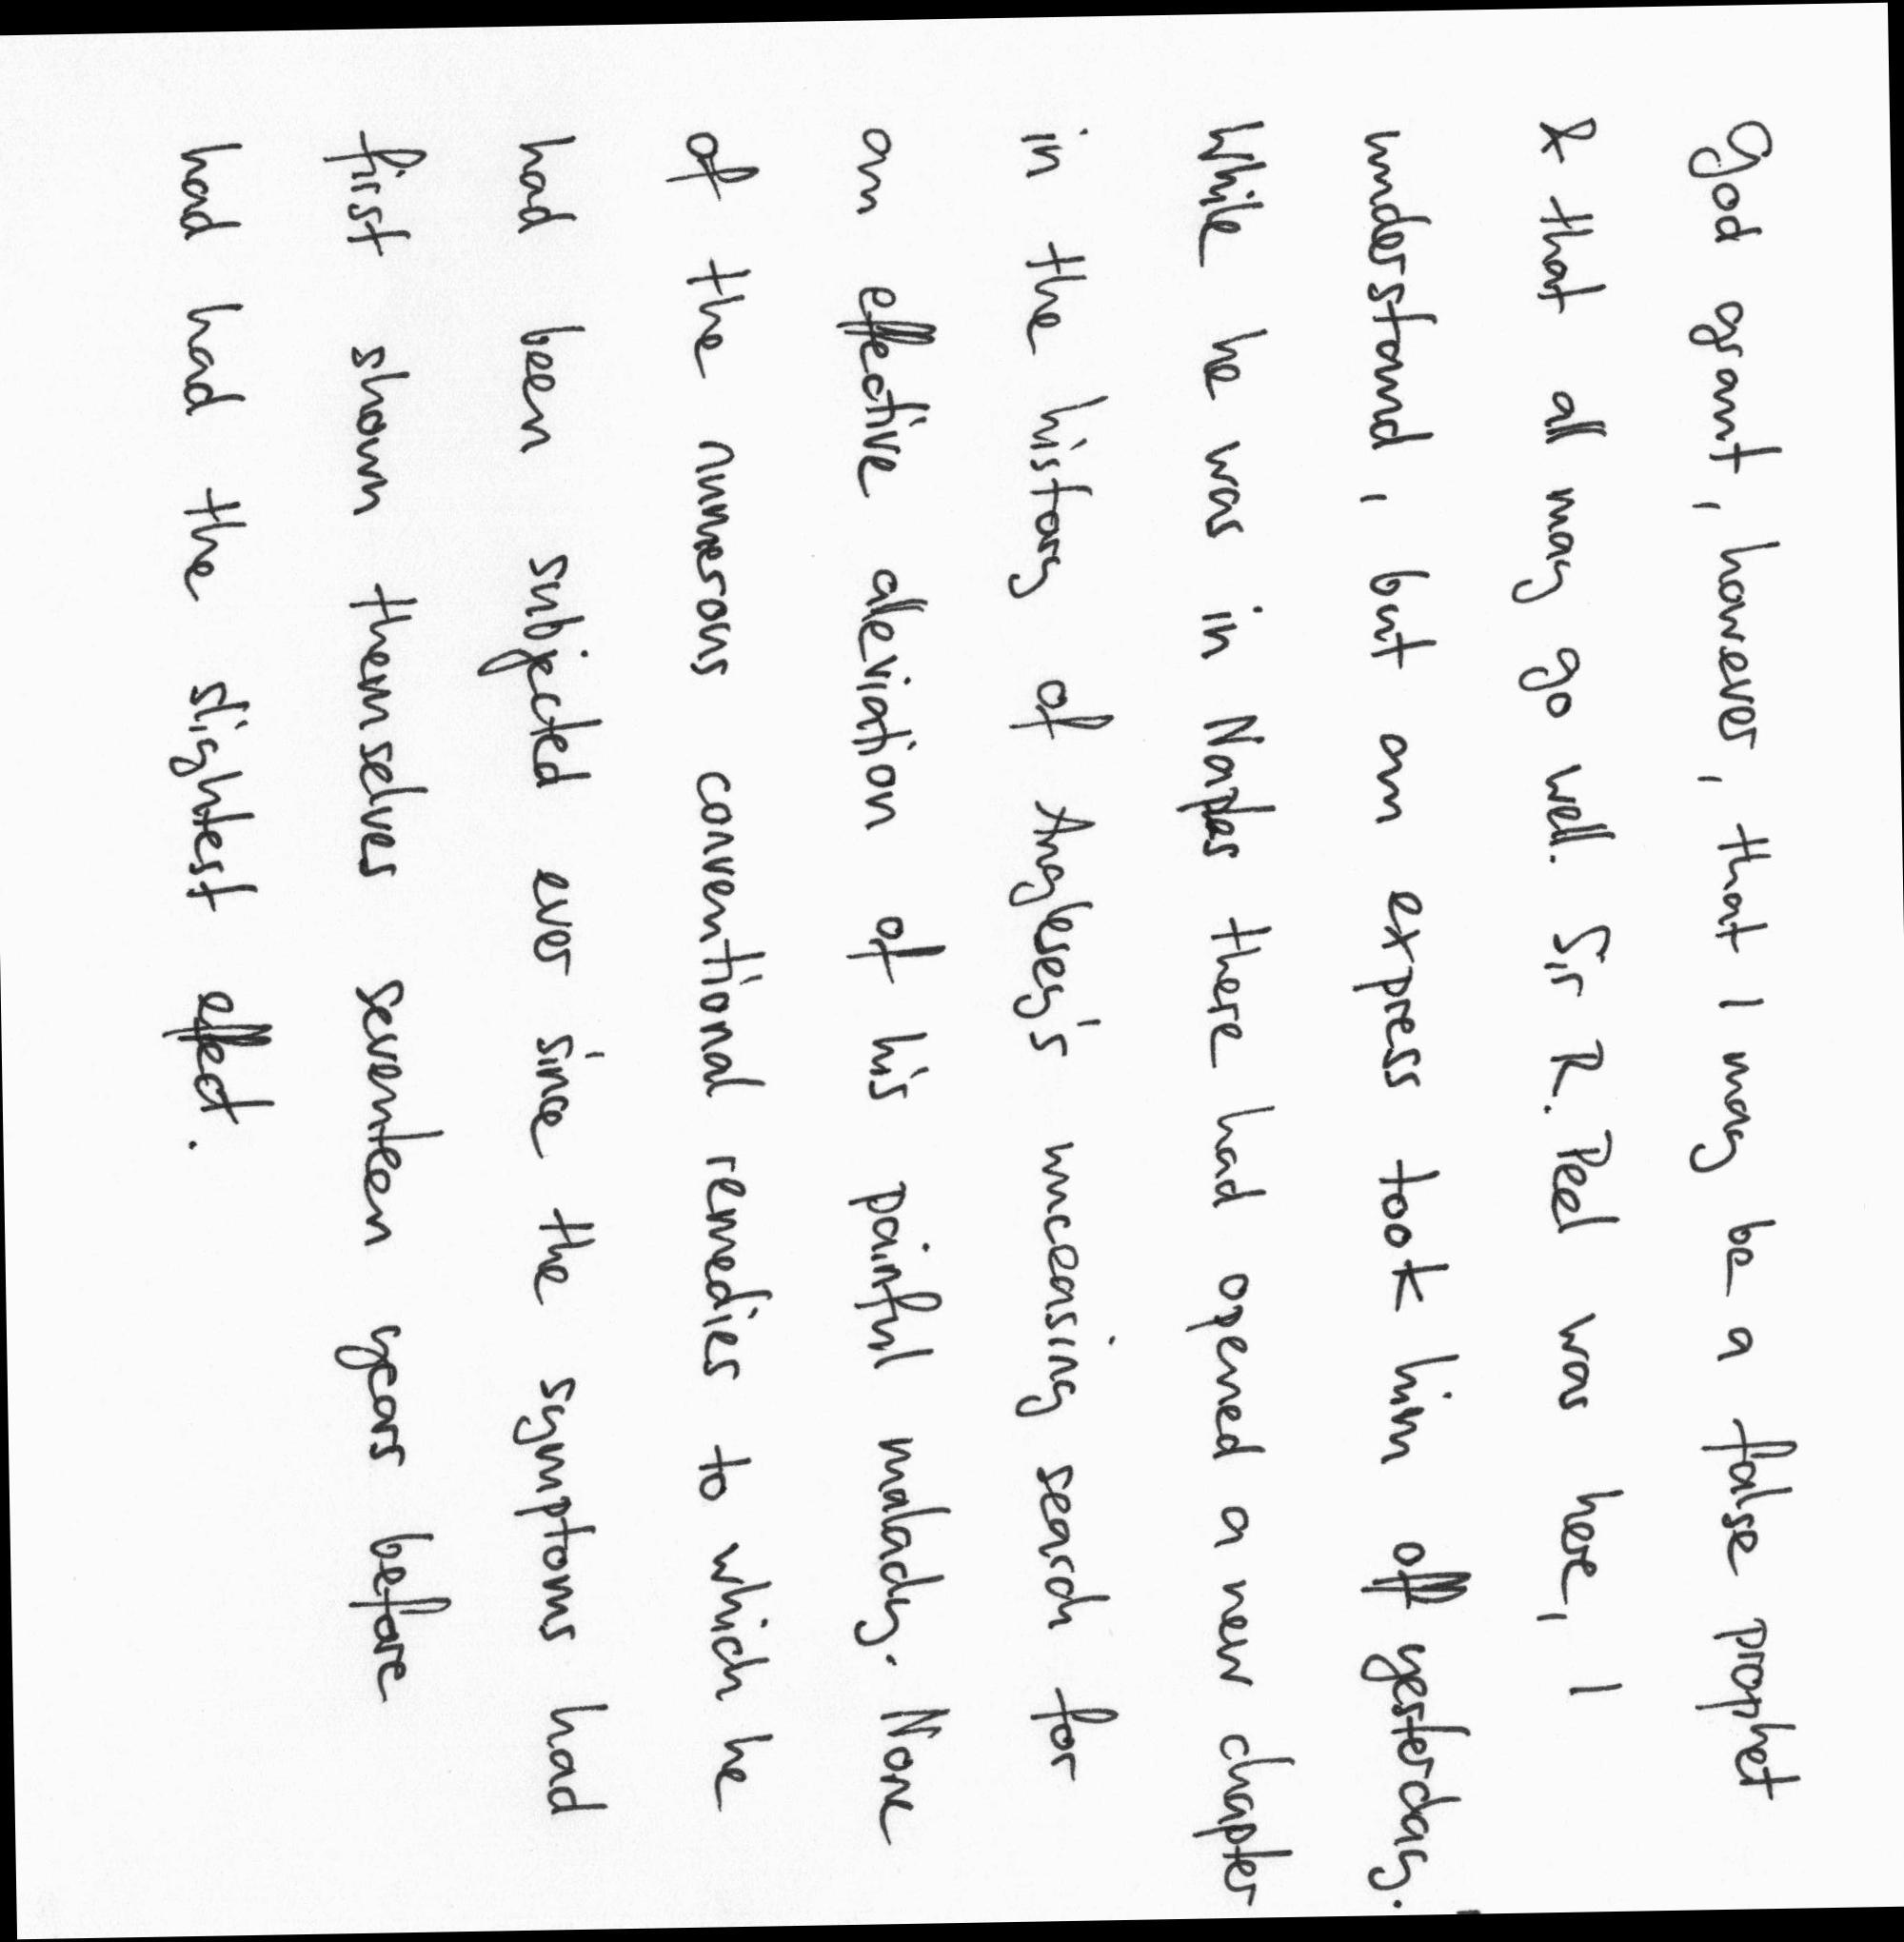 God grant, however, that I may be a false prophet
& that all may go well. Sir R. Peel was here, I
understand, but an express took him off yesterday.
While he was in Naples there had opened a new chapter
in the history of Anglesey's unceasing search for
an effective alleviation of his painful malady. None
of the numerous conventional remedies to which he
had been subjected ever since the symptoms had
first shown themselves seventeen years before
had had the slightest effect.